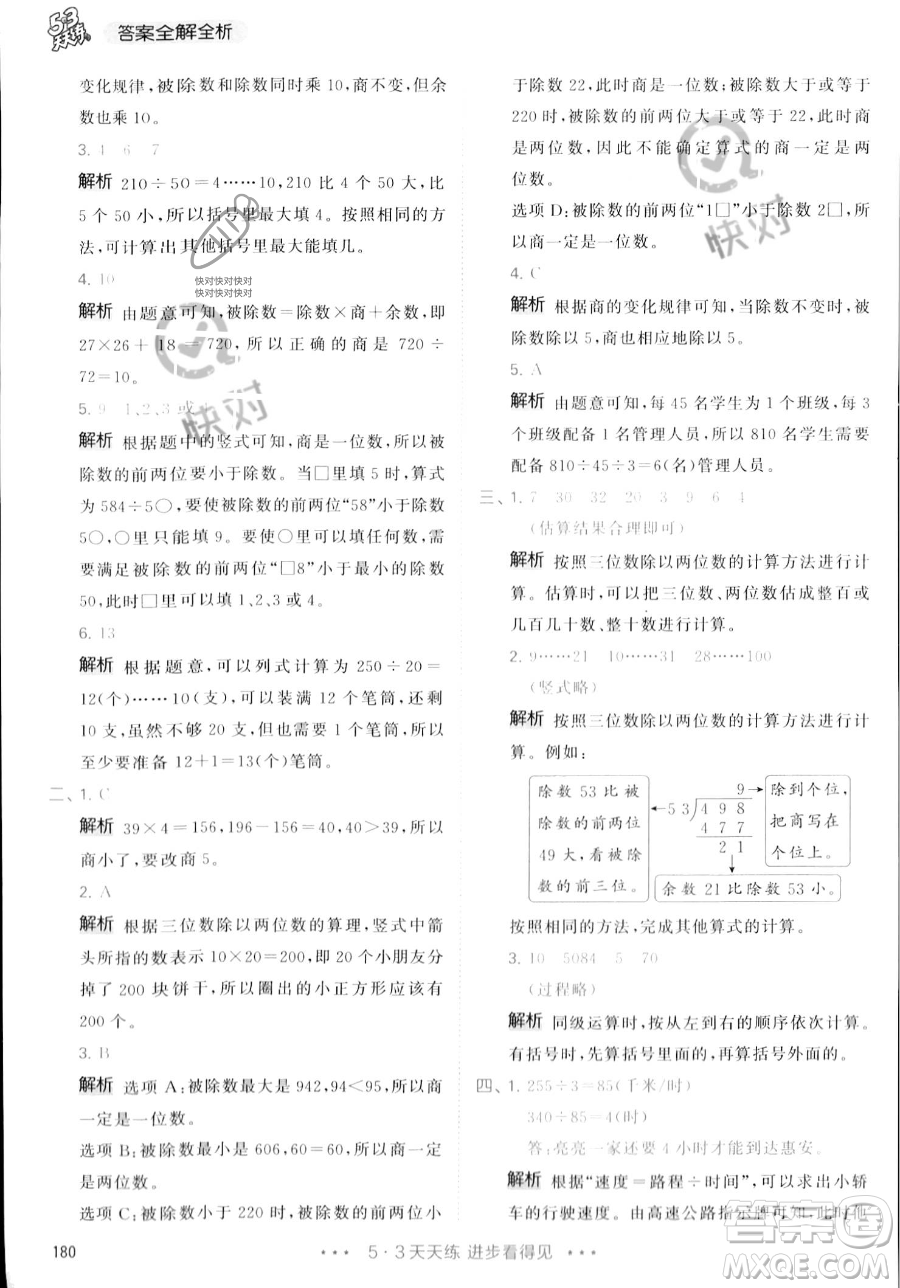 53
天天练
答案全解全析
变化规律，被除数和除数同时乘 10，商不变，余
数也乘 10。
3. 4 6 7
解析 210÷50＝4……10，210 比 4 个 50 大，比
5 个 50 小，所以括号里最大填 4。按照相同的方
法，可计算出其他括号里最大能填几。
4. 10
解析 由题意可知，被除数＝除数×商＋余数，即
27×26＋18＝720，所以正确的商是 720÷
72＝10。
5. 9 1、2、3 或
解析 根据题中的竖式可知，商是一位数，所以被
除数的前两位要小于除数。当□里填 5 时，算式
为 584÷5○，要使被除数的前两位“58”小于除数
5○，○里只能填 9。要使○里可以填任何数，需
要满足被除数的前两位“□8”小于最小的除数
50，此时□里可以填 1、2、3 或 4。
6. 13
解析 根据题意，可以列式计算为 250÷20＝
12(个)……10(支)，可以装满 12 个笔筒，还剩
10 支，虽然不够 20 支，但也需要 1 个笔筒，所以
至少要准备 12＋1＝13(个)笔筒。
二、1. C
解析 39×4＝156，196－156＝40，40＞39，所以
商小了，要改商 5。
2. A
解析 根据三位数除以两位数的算理，竖式中箭
头所指的数表示 10×20＝200，即 20 个小朋友分
掉了 200 块饼干，所以圈出的小正方形应该有
200 个。
3. B
解析 选项 A：被除数最大是 942，94＜95，所以商
一定是一位数。
选项 B：被除数最小是 606，60＝60，所以商一定
是两位数。
选项 C：被除数小于 220 时，被除数的前两位小
于除数 22，此时商是一位数；被除数大于或等于
220 时，被除数的前两位大于或等于 22，此时商
是两位数。因此不能确定算式的商一定是两
位数。
选项 D：被除数的前两位“1□”小于除数 2□，所
以商一定是一位数。
4. C
解析 根据商的变化规律可知，当除数不变时，被
除数除以 5，商也相应地除以 5。
5. A
解析 由题意可知，每 45 名学生为 1 个班级，每 3
个班级配备 1 名管理人员，所以 810 名学生需要
配备 810÷45÷3＝6(名)管理人员。
三、1. 7 30 32 20 3 9 6 4
(估算结果合理即可)
解析 按照三位数除以两位数的计算方法进行计
算。估算时，可以把三位数、两位数估成整百或
几百几十数、整十数进行计算。
2. 9……21 10……31 28……100
(竖式略)
解析 按照三位数除以两位数的计算方法进行计
算。例如：
除数 53 比被
除数的前两位
49 大，看被除
数的前三位。
9
53 4 9 8
4 7 7
2 1
除到个位，
把商写在
个位上。
余数 21 比除数 53 小。
按照相同的方法，完成其他算式的计算。
3. 10 5084 5 70
(过程略)
解析 同级运算时，按从左到右的顺序依次计算。
有括号时，先算括号里面的，再算括号外面的。
四、1. 255÷3＝85(千米/时)
340÷85＝4(时)
答：亮亮一家还要 4 小时才能到达惠安。
解析 根据“速度＝路程÷时间”，可以求出小轿
车的行驶速度。由高速公路指示牌可知，从他
180
5·3 天天练 进步看得见
快对
快对
快对快对快对
快对快对快对